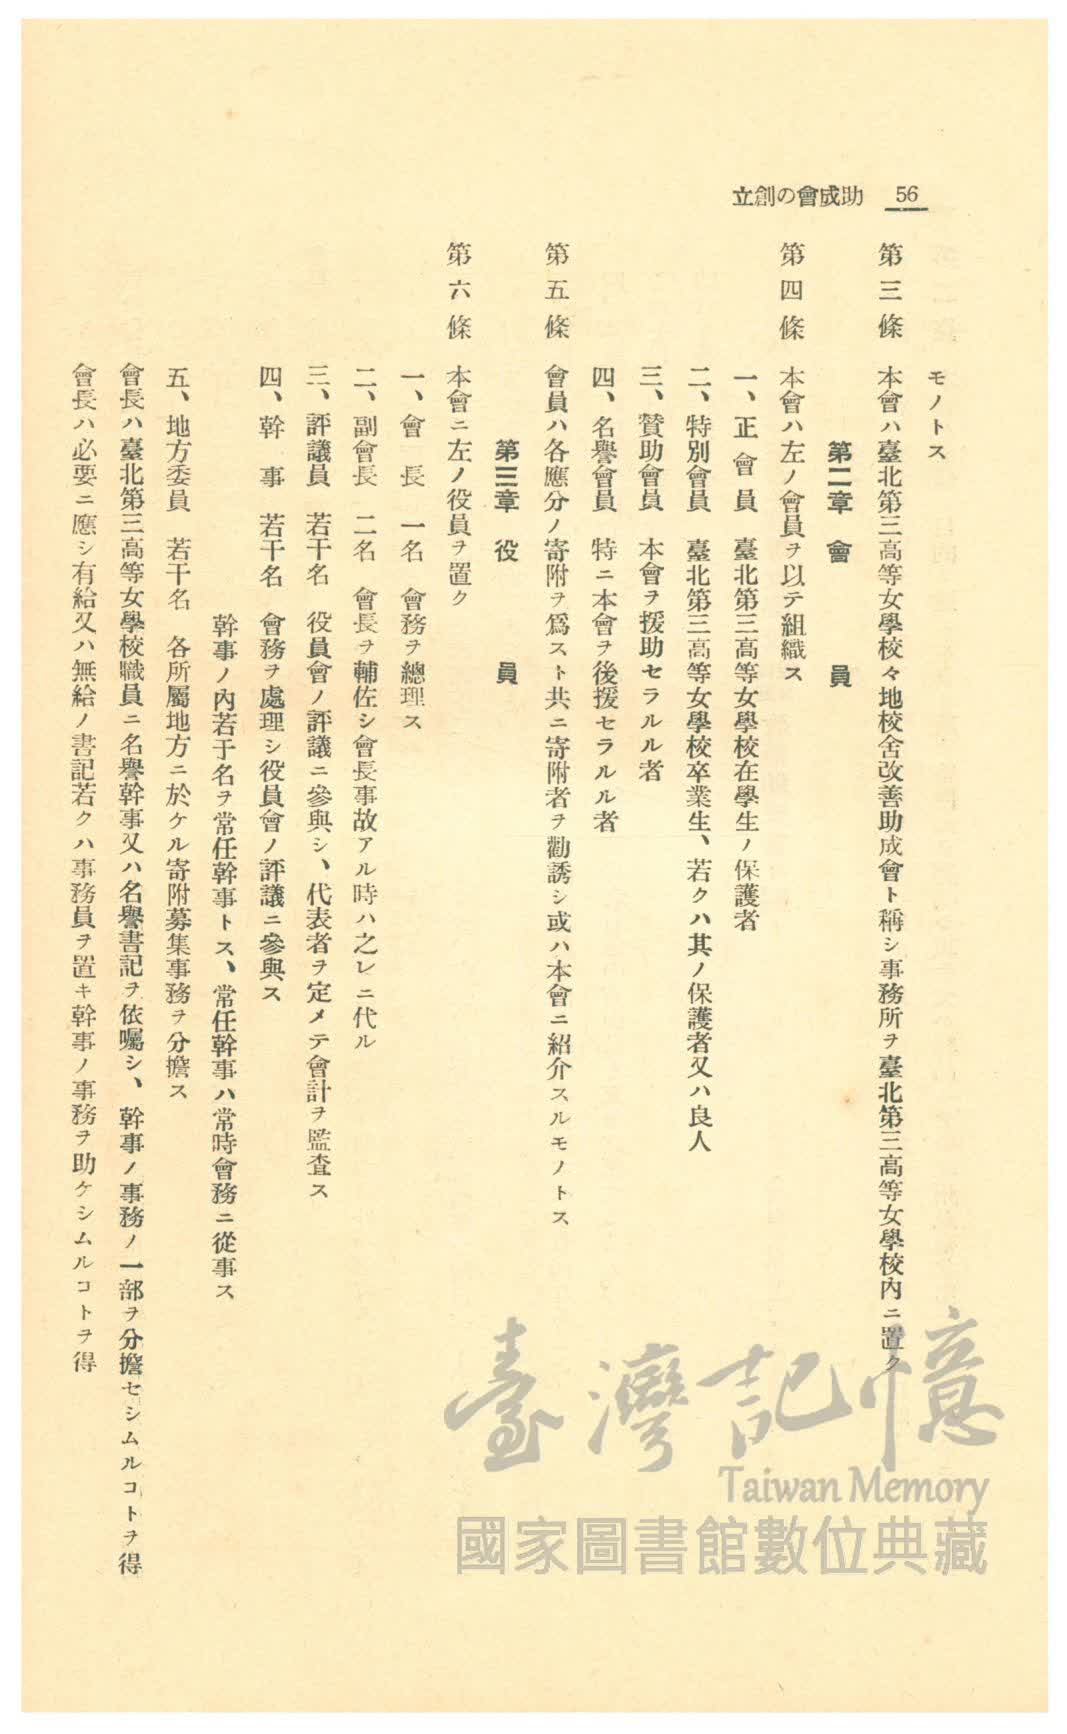 56 助成會の創立
モノトス
第三條 本會ハ臺北第三高等女學校々地校舍改善助成會ト稱シ事務所ヲ臺北第三高等女學校內ニ置ク
第二章 會員
第四條 本會ハ左ノ會員ヲ以テ組織ス
一、正會員 臺北第三高等女學校在學生ノ保護者
二、特別會員 臺北第三高等女學校卒業生、若クハ其ノ保護者又ハ良人
三、贊助會員 本會ヲ援助セラルル者
四、名譽會員 特ニ本會ヲ後援セラルル者
第五條 會員ハ各應分ノ寄附ヲ爲スト共ニ寄附者ヲ勸誘シ或ハ本會ニ紹介スルモノトス
第三章 役員
第六條 本會ニ左ノ役員ヲ置ク
一、會長 一名 會務ヲ總理ス
二、副會長 二名 會長ヲ輔佐シ會長事故アル時ハ之レニ代ル
三、評議員 若干名 役員會ノ評議ニ參與シ、代表者ヲ定メテ會計ヲ監査ス
四、幹事 若干名 會務ヲ處理シ役員會ノ評議ニ參與ス
幹事ノ內若于名ヲ常任幹事トス、常任幹事ハ常時會務ニ從事ス
五、地方委員 若干名 各所屬地方ニ於ケル寄附募集事務ヲ分擔ス
會長ハ臺北第三高等女學校職員ニ名譽幹事又ハ名譽書記ヲ依囑シ、幹事ノ事務ノ一部ヲ分擔セシムルコトヲ得
會長ハ必要ニ應シ有給又ハ無給ノ書記若クハ事務員ヲ置キ幹事ノ事務ヲ助ケシムルコトヲ得
臺灣記憶
Taiwan Memory
國家圖書館數位典藏